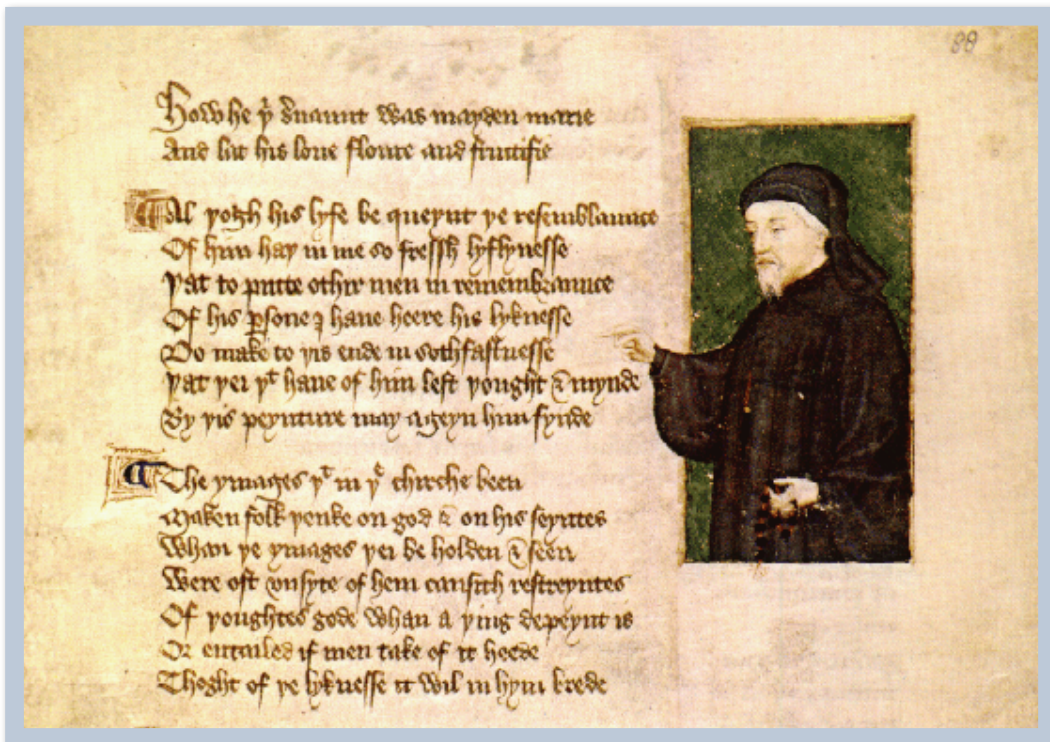 88
How he yͤ s̉uaunt was mayden marie
And lat his loue floure and fructifie
Al yogh his lyfe be queynt ye resemblaunce
Of him hay in me so fressh lyflynesse
Yat to putte othir men in remembraunce
Of his ꝑsone I haue heere his lyknesse
Do make to yis ende in sothfastnesse
Yat yei yͭ haue of him left yought & mynde
By yis peynture may ageyn him fynde
The ymages yͭ in yͤ chirche been
Maken folk yenke on god & on his seyntes
Whan ye ymages yei be holden & seen
Were oft vnsyte of hem causith restreyntes
Of youghtes gode whan a ying depeynt is
Or entailed if men take of it heede
Thoght of ye lyknesse it wil in hym brede